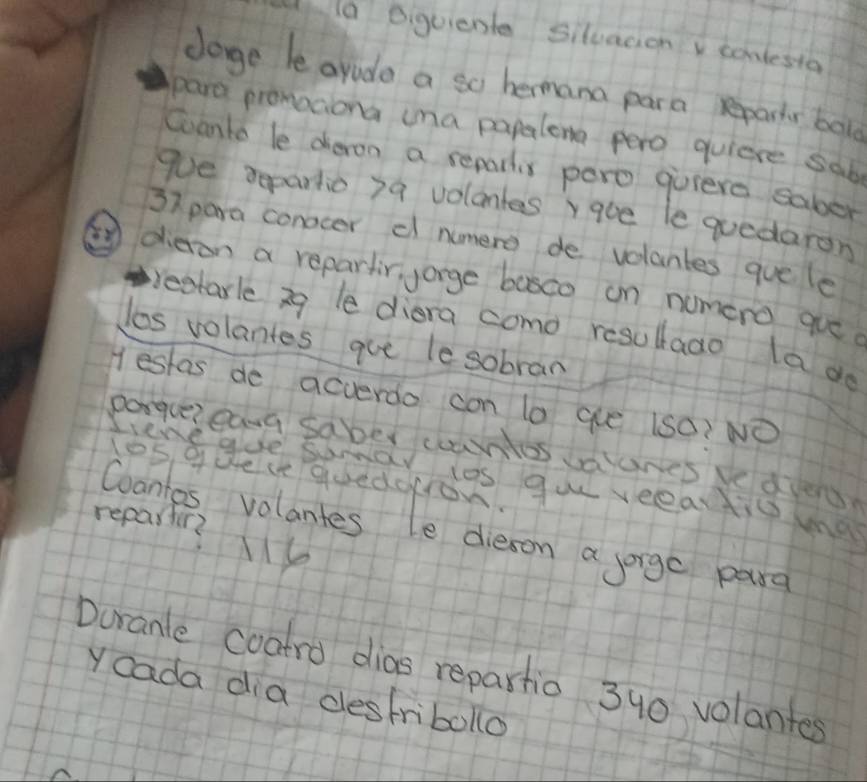 la siguiente situacion y contesta
Jorge le ayudo a so hermana para repartir
para promociona una papaleria pero quiere sabe
Coanto le dieron a repartir pero quiere saber
que repartio 79 volantes y que le quedaron
37 para conocer el numero de volantes que le
dieron a repartir, jorge busco un numero que a
restarle 79 le diera como resultado la de
los volantes que le sobran
Y estas de acuerdo con lo que iso? NO
porque? para saber cuantos volantes le dieron
tiene que sumar los que repartio mas
los que le quedaron.
Coantos volantes le dieron a jorge para
repartir? 116
Durante coatro dias repartio 340 volantes
Y cada dia destribollo